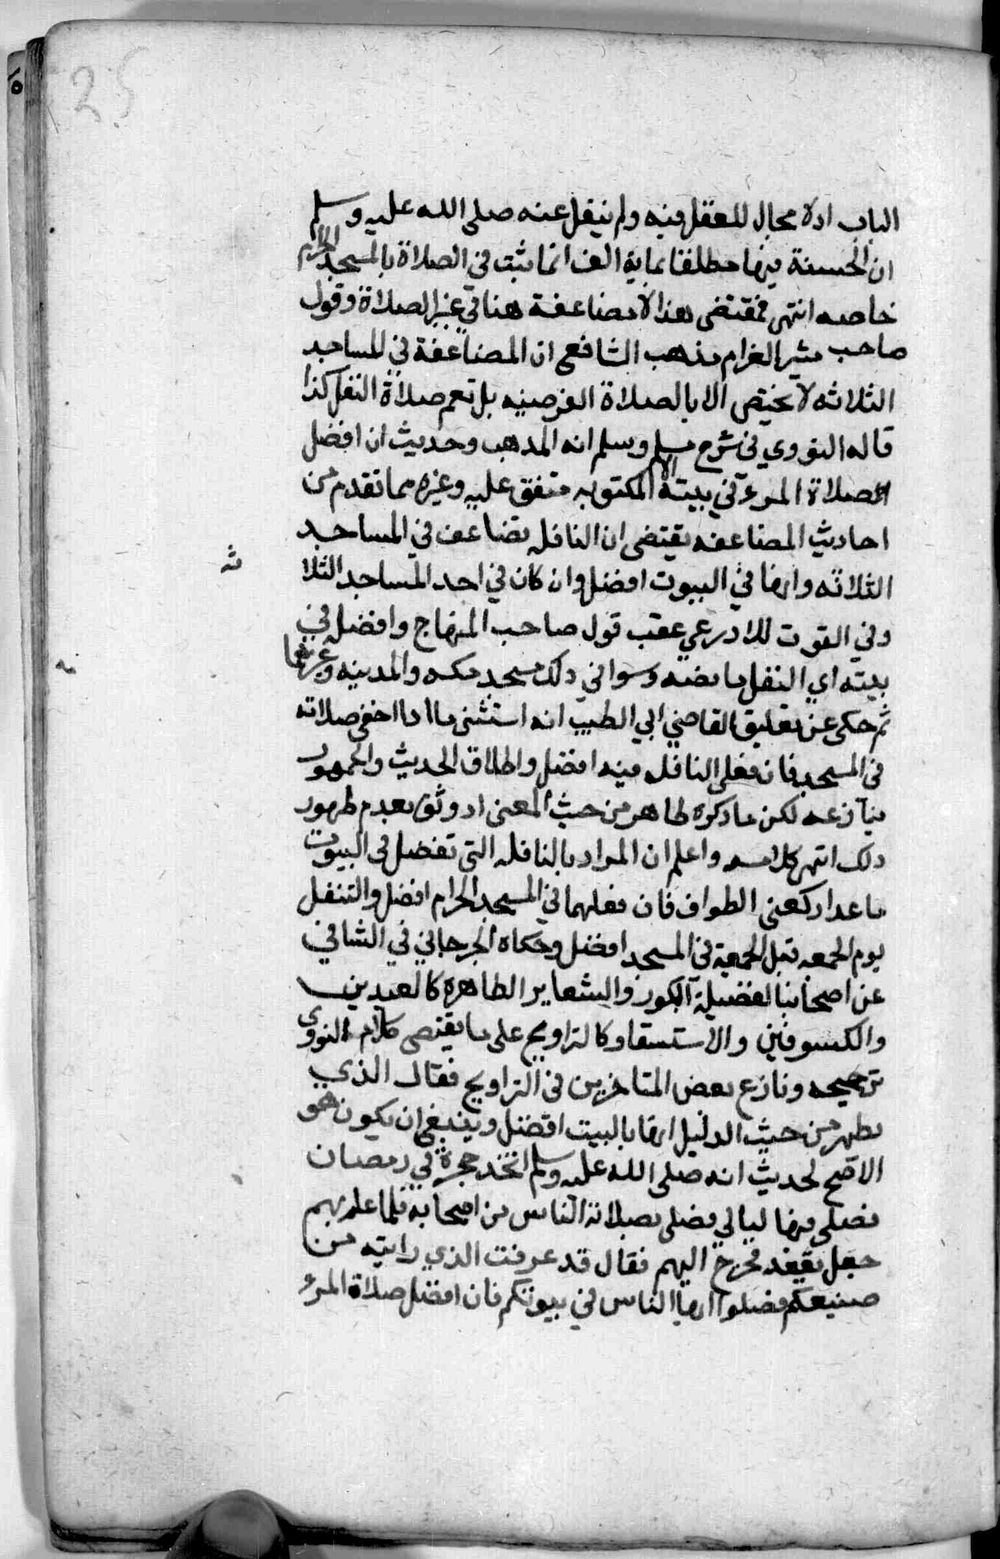 25
الباب اذ لا مجال للعقل فيه ولم ينقل عنه صلى الله عليه وسلم
ان الحسنة فيها مطلقا بماية الف انما ثبت في الصلاة بالمسجد الحرام
خاصه انتهى فمقتضى هذا لا مضاعفة هنا في غير الصلاة وقول
صاحب مثير الغرام مذهب الشافعي ان المضاعفة في المساجد
الثلاثه لا تختص الا بالصلاة الفرضيه بل تعم صلاة النفل كذا
قاله النووي في شرح مسلم وسلم انه المذهب وحديث ان افضل
الصلاة المرء في بيته الا المكتوبه متفق عليه وغيره مما تقدم من
احاديث المضاعفه يقتضى ان النافله تضاعف في المساجد
الثلاثه وانها في البيوت افضل وان كان في احد المساجد الثلا
ثه
وفي القوت للاذرعي عقب قول صاحب المنهاج وافضله في
بيته اي النفل ما نصه وسوا في ذلك مسجد مكه والمدينه وغيرهما
ثم حكى عن تعليق القاضي ابي الطيب انه استثنى ما اذا اخفى صلاته
في المسجد فان فعل النافله فيه افضل واطلاق الحديث والجمهور
ينازعه لكن ما ذكره ظاهر من حيث المعنى اذ وثق بعدم ظهور
ذلك انتهى كلامه واعلم ان المراد بالنافله التي تفضل في البيوت
ما عدا ركعتى الطواف فان فعلهما في المسجد الحرام افضل والتنفل
يوم الجمعه قبل الجمعة في المسجد افضل وحكاه الجرجاني في الشافي
عن اصحابنا لفضيلة البكور والشعاير الظاهره كالعيدين
والكسوفين والاستسقا وكالتراويح على ما يقتضى كلام النووي
ترجيحه ونازع بعض المتاخرين في التراويح فقال الذي
يظهر من حيث الدليل انها بالبيت افضل وينبغي ان يكون هو
الاصح لحديث انه صلى الله عليه وسلم اتخذ حجرة في رمضان
فصلى فيها ليالي فصلى بصلاته الناس من اصحابه فلما علم بهم
جعل يقعد فخرج اليهم فقال قد عرفت الذي رايته من
صنيعكم فصلوا ايها الناس في بيوتكم فان افضل صلاة المرء